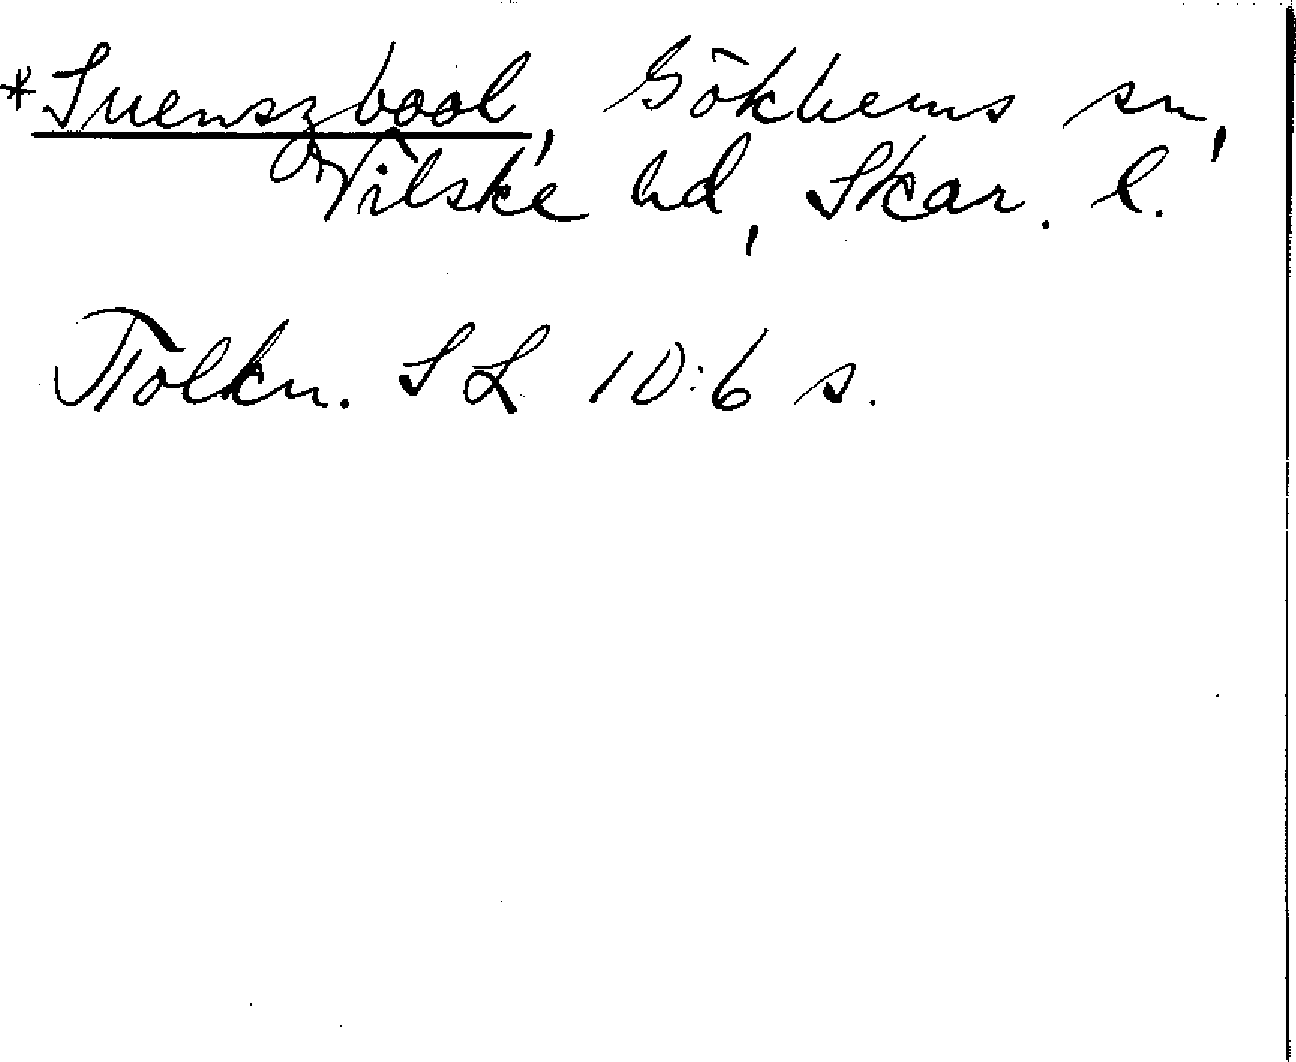 *Suenszbool, Gökhems sn,
Vilske hd, Skar. l.
Tolkn. SL 10:6 s.